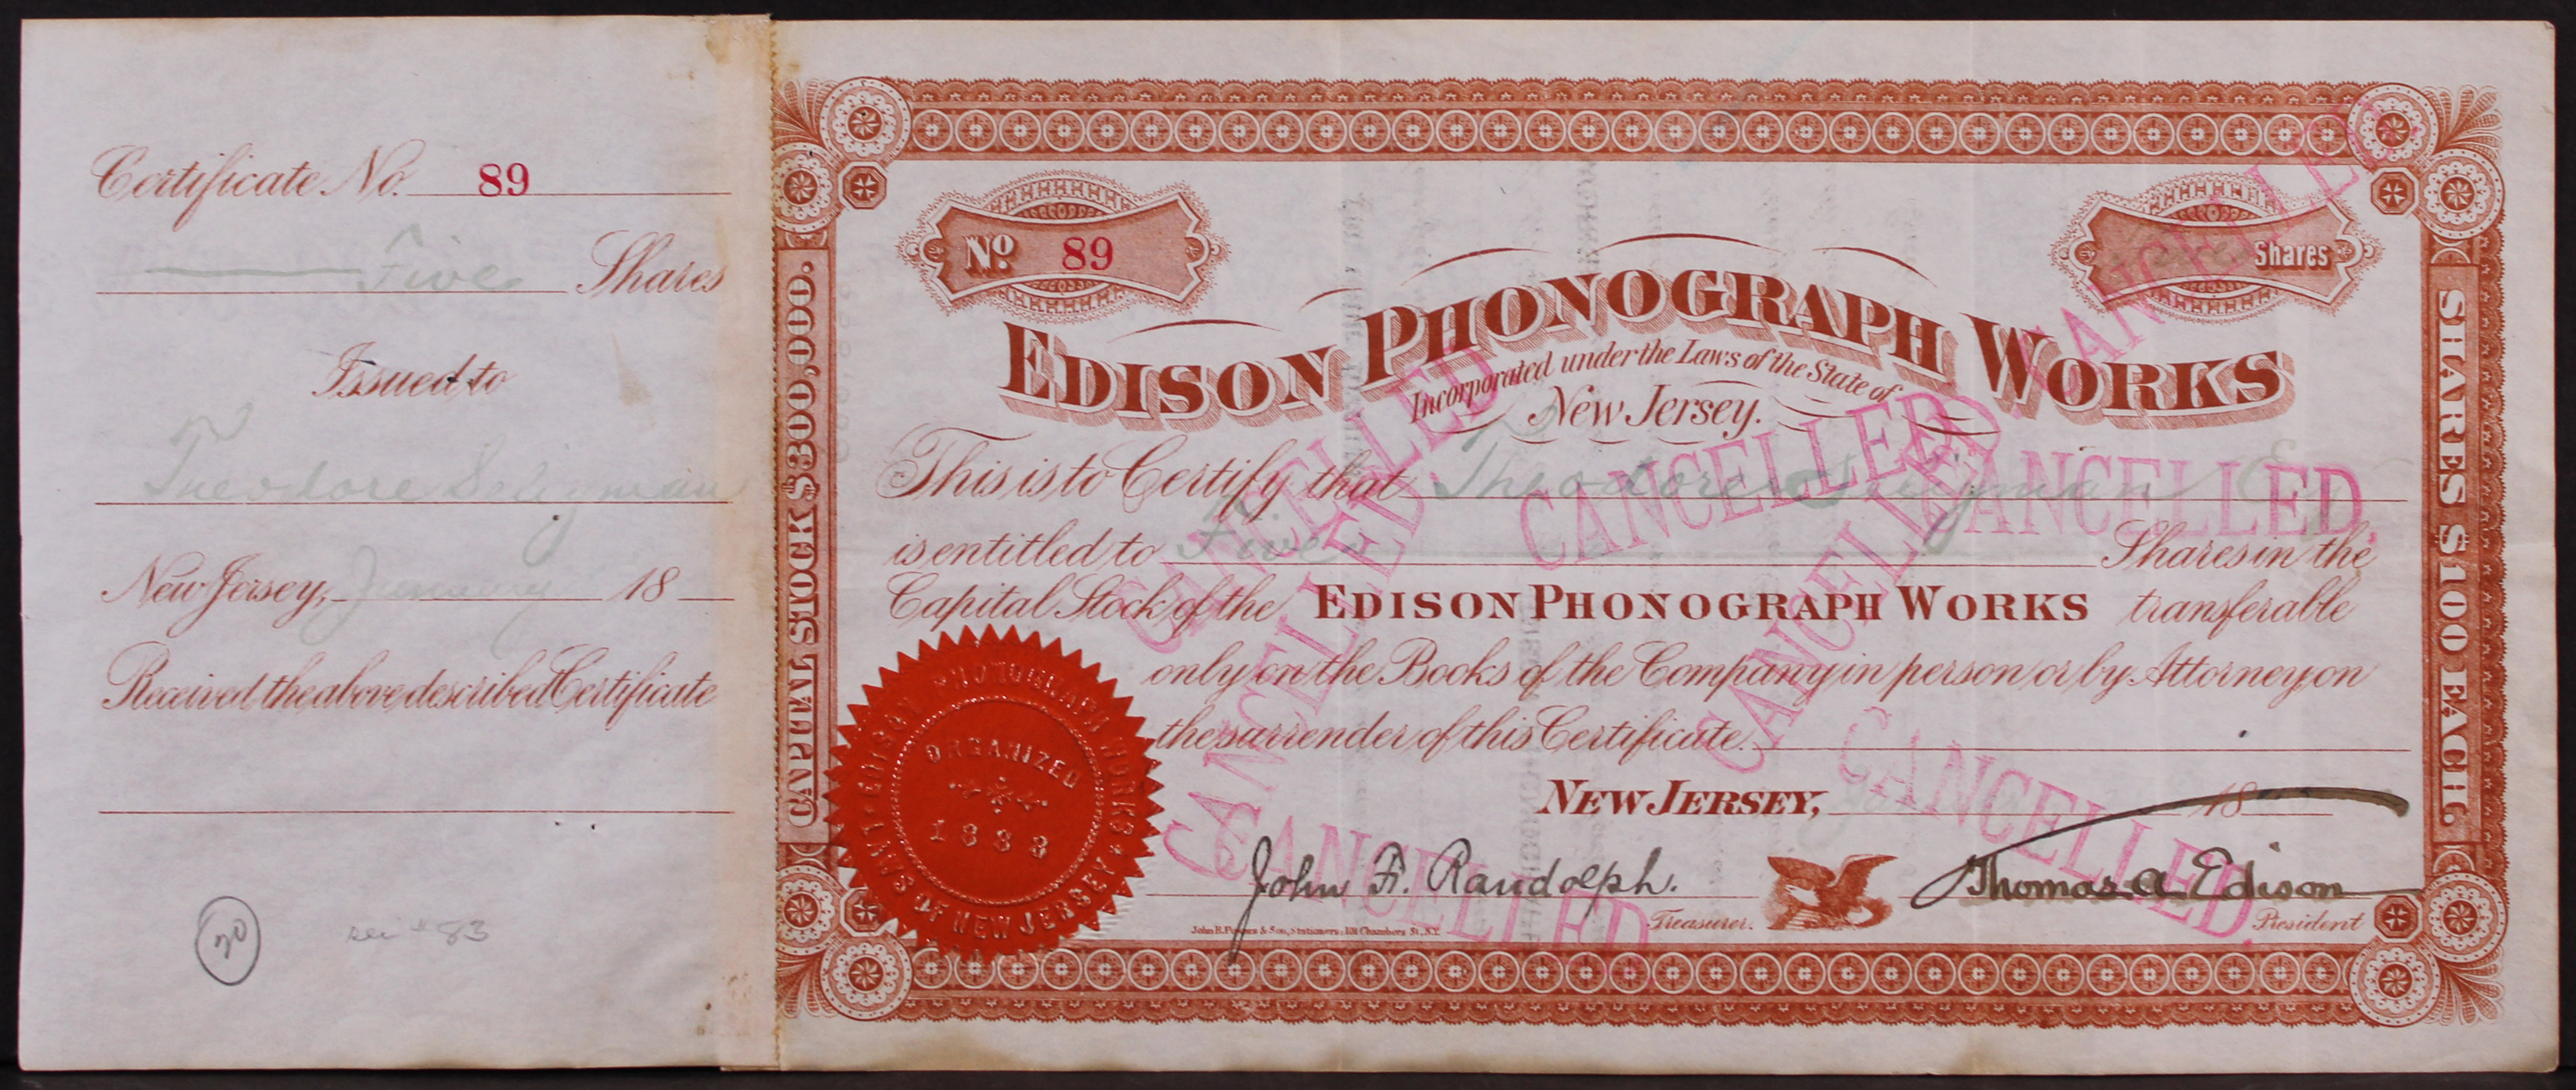 Certificate No. 89
Five Shares
Issued to
Theodore Seligman
New Jersey, January 18
Received the above described Certificate
20
see #83
CAPITAL STOCK $300,000.
No. 89
Shares
EDISON PHONOGRAPH WORKS
Incorporated under the Laws of the State of
New Jersey.
This is to Certify that Theodore Seligman
is entitled to Five Shares in the
Capital Stock of the EDISON PHONOGRAPH WORKS transferable
only on the Books of the Company in person or by Attorney on
the surrender of this Certificate.
NEW JERSEY, 18
John F. Randolph. Treasurer.
Thomas A Edison President
& Son, Stationers, 101 Chambers St., N.Y.
EDISON PHONOGRAPH WORKS
LAWS OF NEW JERSEY
ORGANIZED
1888
SHARES $100 EACH.
CANCELLED.
CANCELLED.
CANCELLED.
CANCELLED.
CANCELLED.
CANCELLED.
CANCELLED.
CANCELLED.